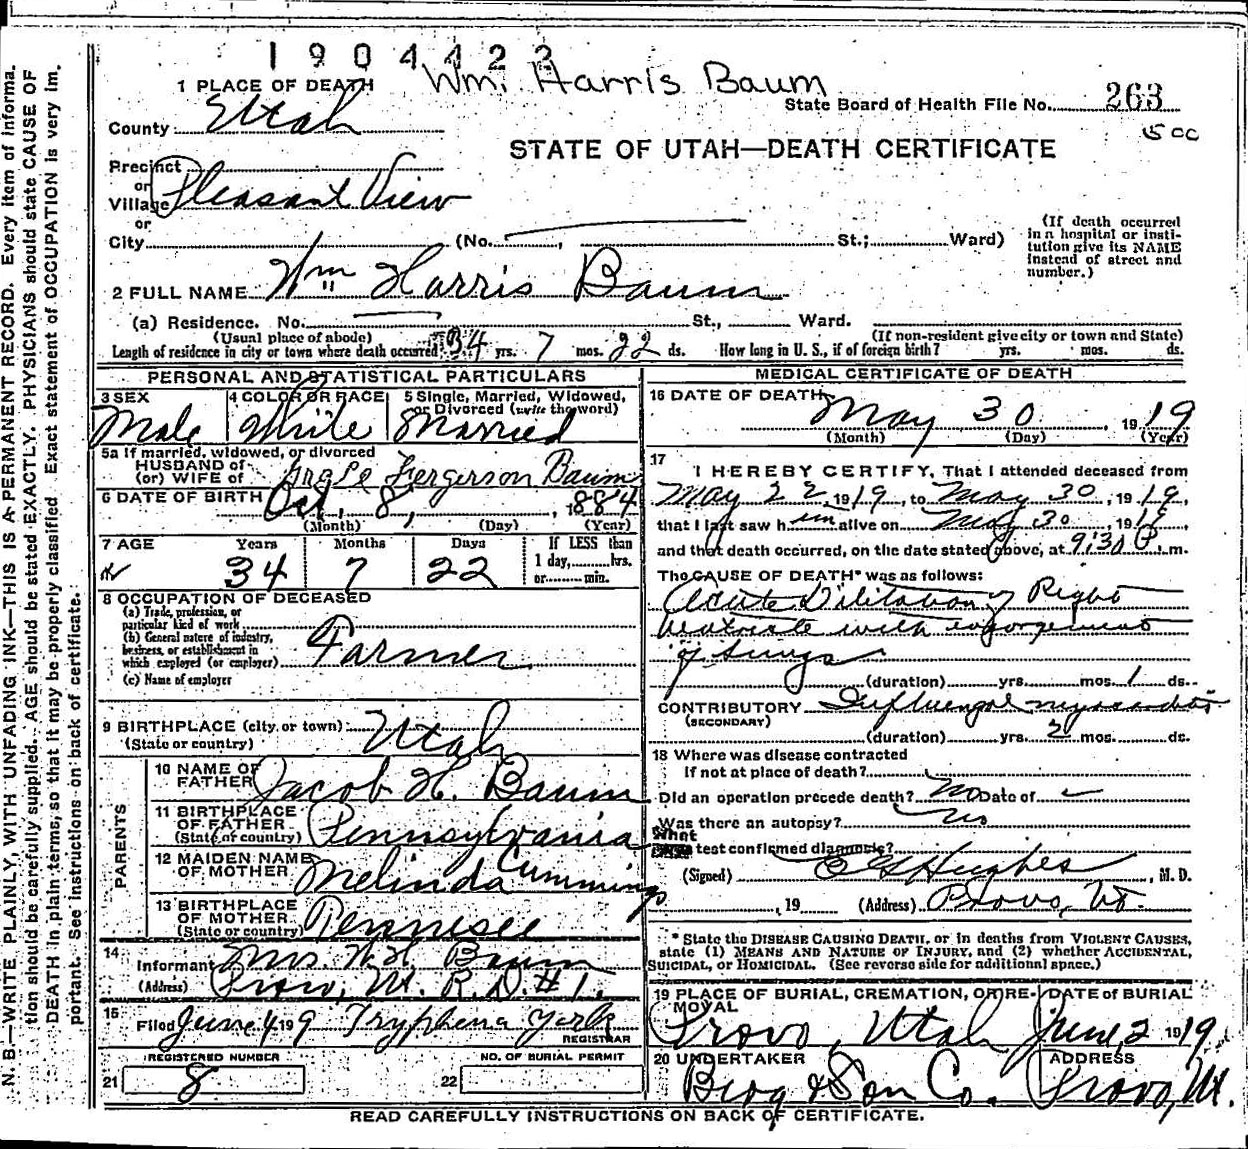 1904423
Wm. Harris Baum
1 PLACE OF DEATH
State Board of Health File No. 263
15 cc
County Utah
STATE OF UTAH—DEATH CERTIFICATE
Precinct
or
Village Pleasant View
or
City (No. , St.; Ward)
(If death occurred in a hospital or institution give its NAME instead of street and number.)
2 FULL NAME Wm Harris Baum
(a) Residence. No. St., Ward.
(Usual place of abode) (If non-resident give city or town and State)
Length of residence in city or town where death occurred 34 yrs. 7 mos. 22 ds. How long in U. S., if of foreign birth? yrs. mos. ds.
PERSONAL AND STATISTICAL PARTICULARS
3 SEX 4 COLOR OR RACE 5 Single, Married, Widowed, or Divorced (write the word)
Male White Married
5a If married, widowed, or divorced
HUSBAND of
(or) WIFE of Fergerson Baum
6 DATE OF BIRTH Oct, 8, 1884
(Month) (Day) (Year)
7 AGE Years Months Days If LESS than 1 day, hrs. or min.
34 7 22
8 OCCUPATION OF DECEASED
(a) Trade, profession, or particular kind of work
(b) General nature of industry, business, or establishment in which employed (or employer) Farmer
(c) Name of employer
9 BIRTHPLACE (city or town)
(State or country) Utah
PARENTS
10 NAME OF FATHER Jacob H. Baum
11 BIRTHPLACE OF FATHER (State or country) Pennsylvania
12 MAIDEN NAME OF MOTHER Melinda Cummings
13 BIRTHPLACE OF MOTHER (State or country) Tennesee
14 Informant Mrs. W H Baum
(Address) Provo, Ut. R. D. #1.
15 Filed June 4 1919 Tryphena York
REGISTRAR
REGISTERED NUMBER NO. OF BURIAL PERMIT
21 8 22
MEDICAL CERTIFICATE OF DEATH
16 DATE OF DEATH May 30, 1919
(Month) (Day) (Year)
17 I HEREBY CERTIFY, That I attended deceased from
May 22, 1919, to May 30, 1919,
that I last saw him alive on May 30 1919
and that death occurred, on the date stated above, at 9:30 P. m.
The CAUSE OF DEATH* was as follows:
Acute Dilitation of Right
with engorgement
of lungs
(duration) yrs. mos. 1 ds.
CONTRIBUTORY Influenzal myocarditis
(SECONDARY)
(duration) yrs. 2 mos. ds.
18 Where was disease contracted
If not at place of death?
Did an operation precede death? No Date of
Was there an autopsy? No
What test confirmed diagnosis?
(Signed) E G Hughes, M. D.
, 19 (Address) Provo, Ut.
* State the DISEASE CAUSING DEATH, or in deaths from VIOLENT CAUSES,
state (1) MEANS AND NATURE OF INJURY, and (2) whether ACCIDENTAL,
SUICIDAL, or HOMICIDAL. (See reverse side for additional space.)
19 PLACE OF BURIAL, CREMATION, OR REMOVAL DATE of BURIAL
Provo, Utah June 2 1919
20 UNDERTAKER ADDRESS
Berg & Son Co. Provo, Ut.
READ CAREFULLY INSTRUCTIONS ON BACK OF CERTIFICATE.
N. B.—WRITE PLAINLY, WITH UNFADING INK—THIS IS A PERMANENT RECORD. Every item of informa-
tion should be carefully supplied. AGE should be stated EXACTLY. PHYSICIANS should state CAUSE OF
DEATH in plain terms, so that it may be properly classified. Exact statement of OCCUPATION is very im-
portant. See instructions on back of certificate.